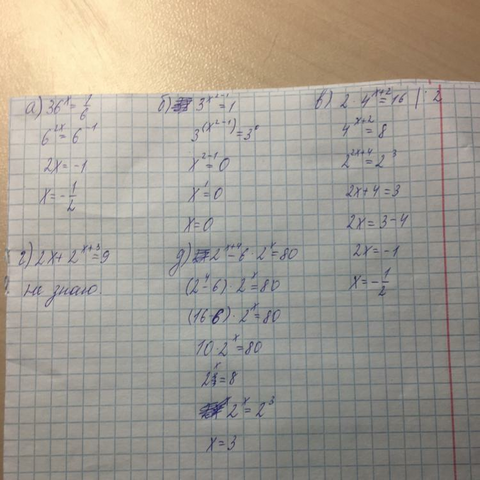 а) 36^x = 1/6
6^2x = 6^-1
2x = -1
x = -1/2
б) 3^x^2-1 = 1
3^(x^2-1) = 3^0
x^2-1 = 0
x^1 = 0
x = 0
в) 2 · 4^x+2 = 16 | : 2
4^x+2 = 8
2^2x+4 = 2^3
2x+4 = 3
2x = 3-4
2x = -1
x = -1/2
г) 2x + 2^x+3 = 9
не знаю
д) 2^x+4 - 6 · 2^x = 80
(2^4 - 6) 2^x = 80
(16-6) · 2^x = 80
10 · 2^x = 80
2^x = 8
2^x = 2^3
x = 3